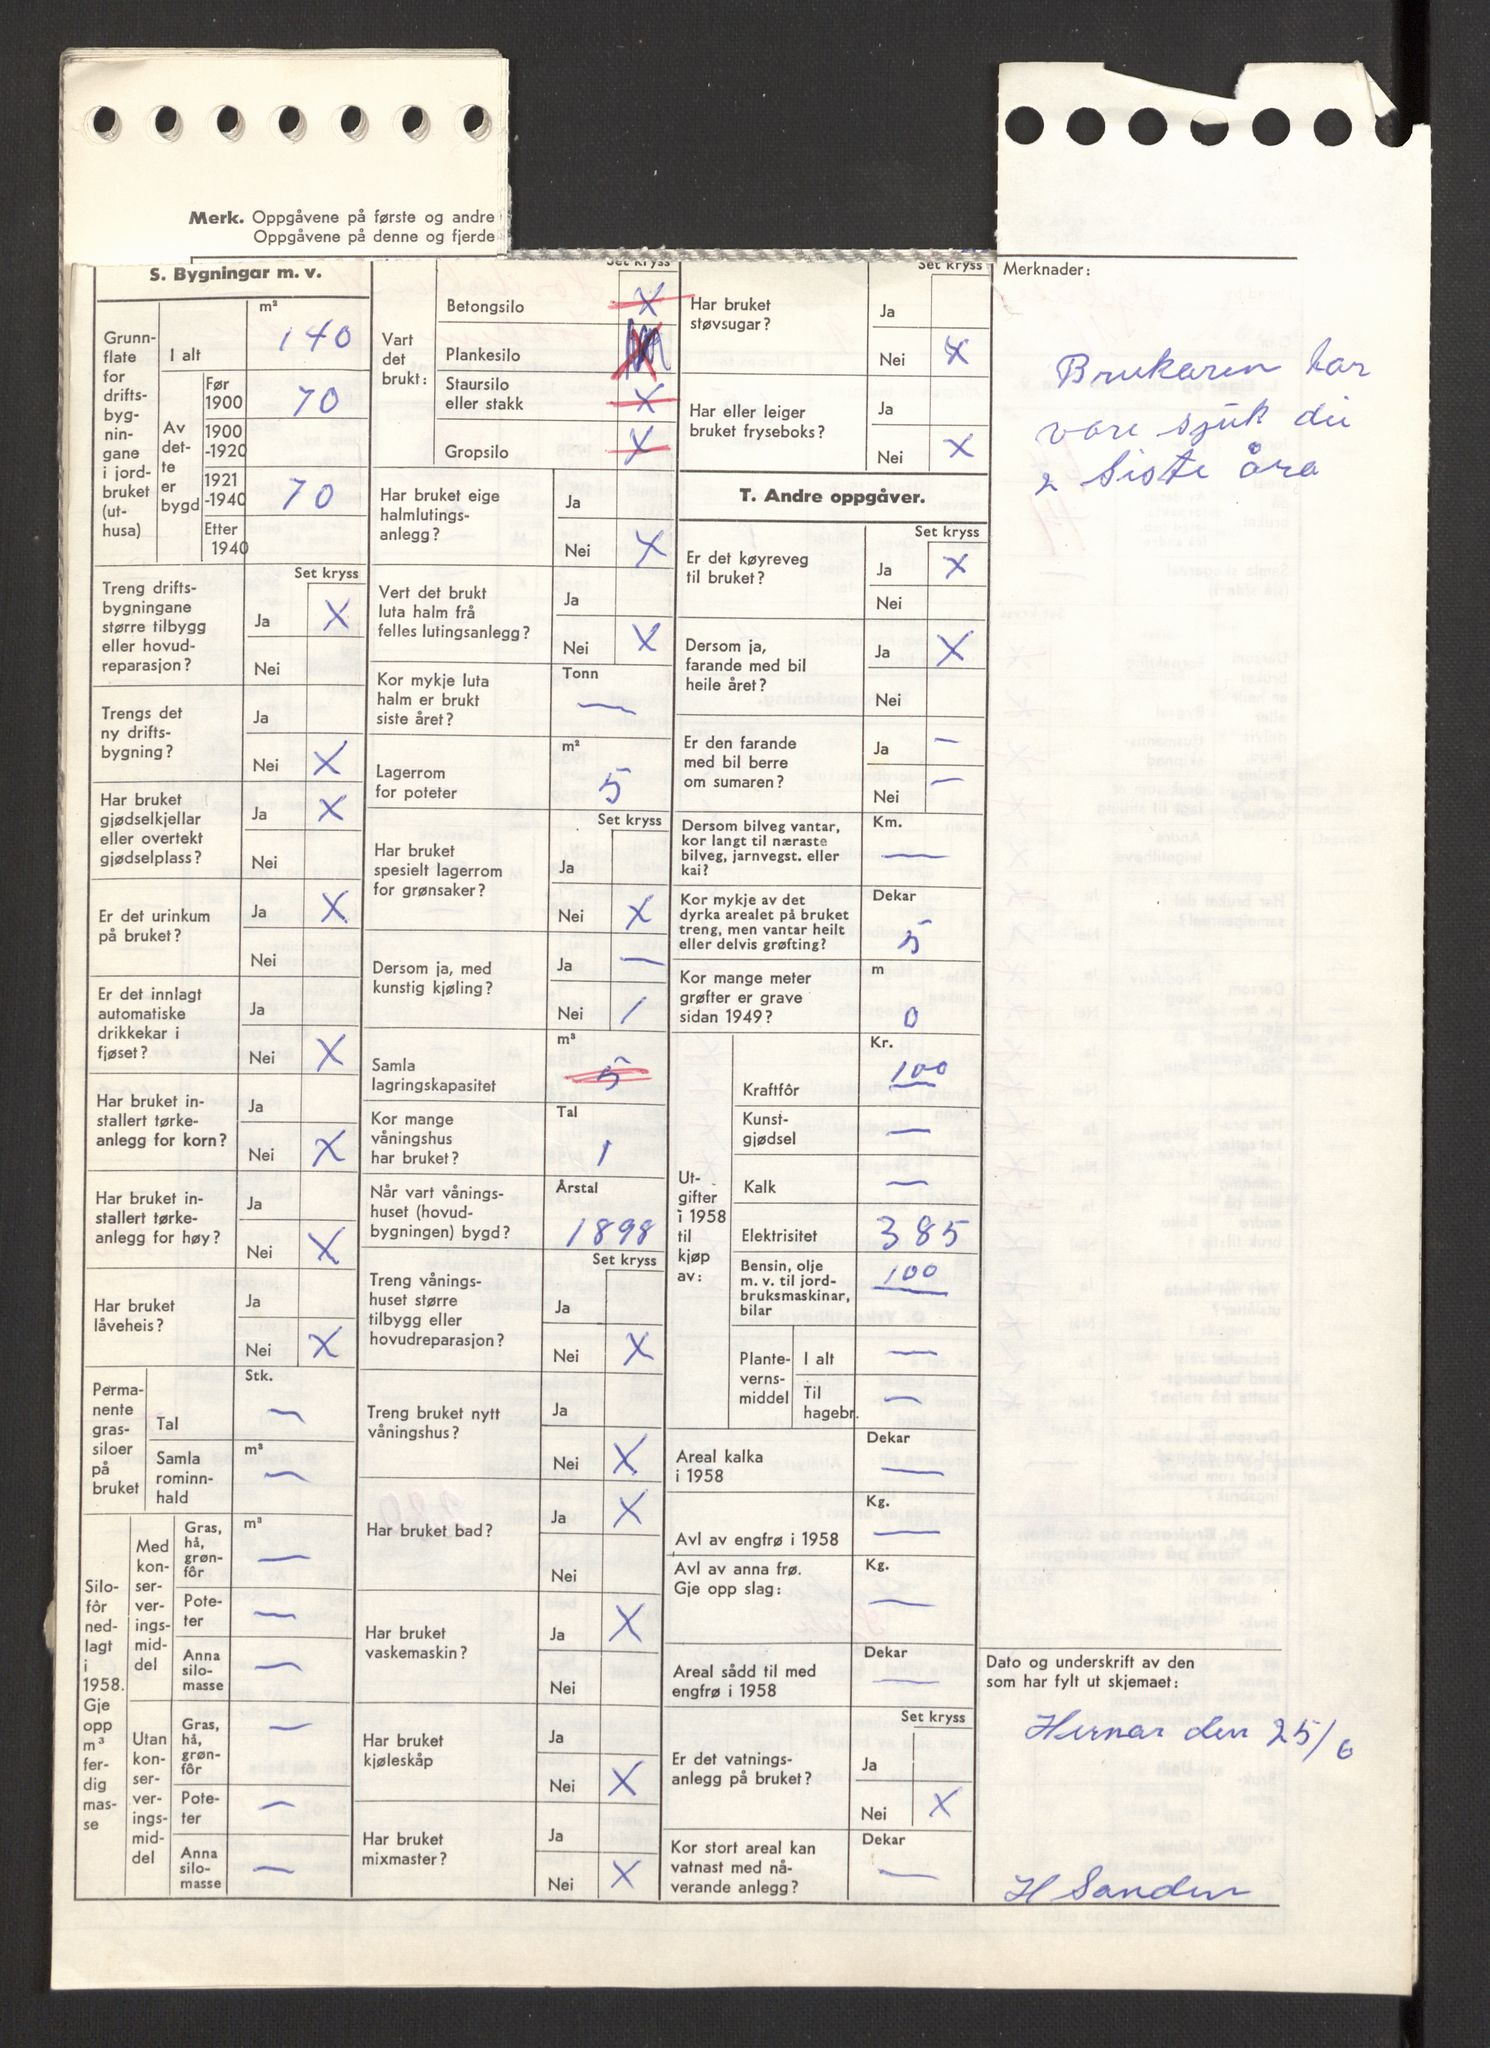 Merk. Oppgåvene på første og andre
Oppgåvene på denne og fjerde
S. Bygningar m. v.
Grunn-
flate
for
drifts-
byg-
nin-
gane
i jord-
bruket
(ut-
husa)
m²
I alt 140
Av
det-
te
er
bygd
Før
1900 70
1900
-1920
1921
-1940 70
Etter
1940
Set kryss
Treng drifts-
bygningane
større tilbygg
eller hovud-
reparasjon?
Ja X
Nei
Trengs det
ny drifts-
bygning?
Ja
Nei X
Har bruket
gjødselkjellar
eller overtekt
gjødselplass?
Ja X
Nei
Er det urinkum
på bruket?
Ja X
Nei
Er det innlagt
automatiske
drikkekar i
fjøset?
Ja
Nei X
Har bruket in-
stallert tørke-
anlegg for korn?
Ja
Nei X
Har bruket in-
stallert tørke-
anlegg for høy?
Ja
Nei X
Har bruket
låveheis?
Ja
Nei X
Perma-
nente
gras-
siloer
på
bruket
Stk.
Tal —
Samla
rominn-
hald
m³ —
Silo-
fôr
ned-
lagt
i
1958.
Gje
opp
m³
fer-
dig
mas-
se
Med
kon-
ser-
ver-
ings-
mid-
del
m³
Gras,
hå,
grøn-
fôr —
Pote-
ter —
Anna
silo-
masse —
Utan
kon-
ser-
ver-
ings-
mid-
del
Gras,
hå,
grøn-
fôr —
Pote-
ter —
Anna
silo-
masse —
Set kryss
Vart
det
brukt:
Betongsilo X
Plankesilo X
Staursilo
eller stakk X
Gropsilo X
Har bruket eige
halmlutings-
anlegg?
Ja
Nei X
Vert det brukt
luta halm frå
felles lutingsanlegg?
Ja
Nei X
Kor mykje luta
halm er brukt
siste året?
Tonn
—
Lagerrom
for poteter
m²
5
Set kryss
Har bruket
spesielt lagerrom
for grønsaker?
Ja
Nei X
Dersom ja, med
kunstig kjøling?
Ja —
Nei /
Samla
lagringskapasitet
m³
5
Kor mange
våningshus
har bruket?
Tal
1
Når vart vånings-
huset (hovud-
bygningen) bygd?
Årstal
1898
Set kryss
Treng vånings-
huset større
tilbygg eller
hovudreparasjon?
Ja
Nei X
Treng bruket nytt
våningshus?
Ja
Nei X
Har bruket bad?
Ja X
Nei
Har bruket
vaskemaskin?
Ja X
Nei
Har bruket
kjøleskåp
Ja
Nei X
Har bruket
mixmaster?
Ja
Nei X
Set kryss
Har bruket
støvsugar?
Ja
Nei X
Har eller leiger
bruket fryseboks?
Ja
Nei X
T. Andre oppgåver.
Set kryss
Er det køyreveg
til bruket?
Ja X
Nei
Dersom ja,
farande med bil
heile året?
Ja X
Nei
Er den farande
med bil berre
om sumaren?
Ja —
Nei —
Dersom bilveg vantar,
kor langt til næraste
bilveg, jarnvegst. eller
kai?
Km.
—
Kor mykje av det
dyrka arealet på bruket
treng, men vantar heilt
eller delvis grøfting?
Dekar
5
Kor mange meter
grøfter er grave
sidan 1949?
m
0
Ut-
gifter
i 1958
til
kjøp
av:
Kr.
Kraftfôr 100
Kunst-
gjødsel —
Kalk —
Elektrisitet 385
Bensin, olje
m. v. til jord-
bruksmaskinar,
bilar
100
Plante-
verns-
middel
I alt —
Til
hagebr. —
Areal kalka
i 1958
Dekar
—
Avl av engfrø i 1958
Kg.
—
Avl av anna frø.
Gje opp slag:
Kg.
—
Areal sådd til med
engfrø i 1958
Dekar
—
Set kryss
Er det vatnings-
anlegg på bruket?
Ja
Nei X
Kor stort areal kan
vatnast med nå-
verande anlegg?
Dekar
—
Merknader:
Brukaren har
vore sjuk dei
2 siste åra
Dato og underskrift av den
som har fylt ut skjemaet:
Hernar den 25/6
H Sanden